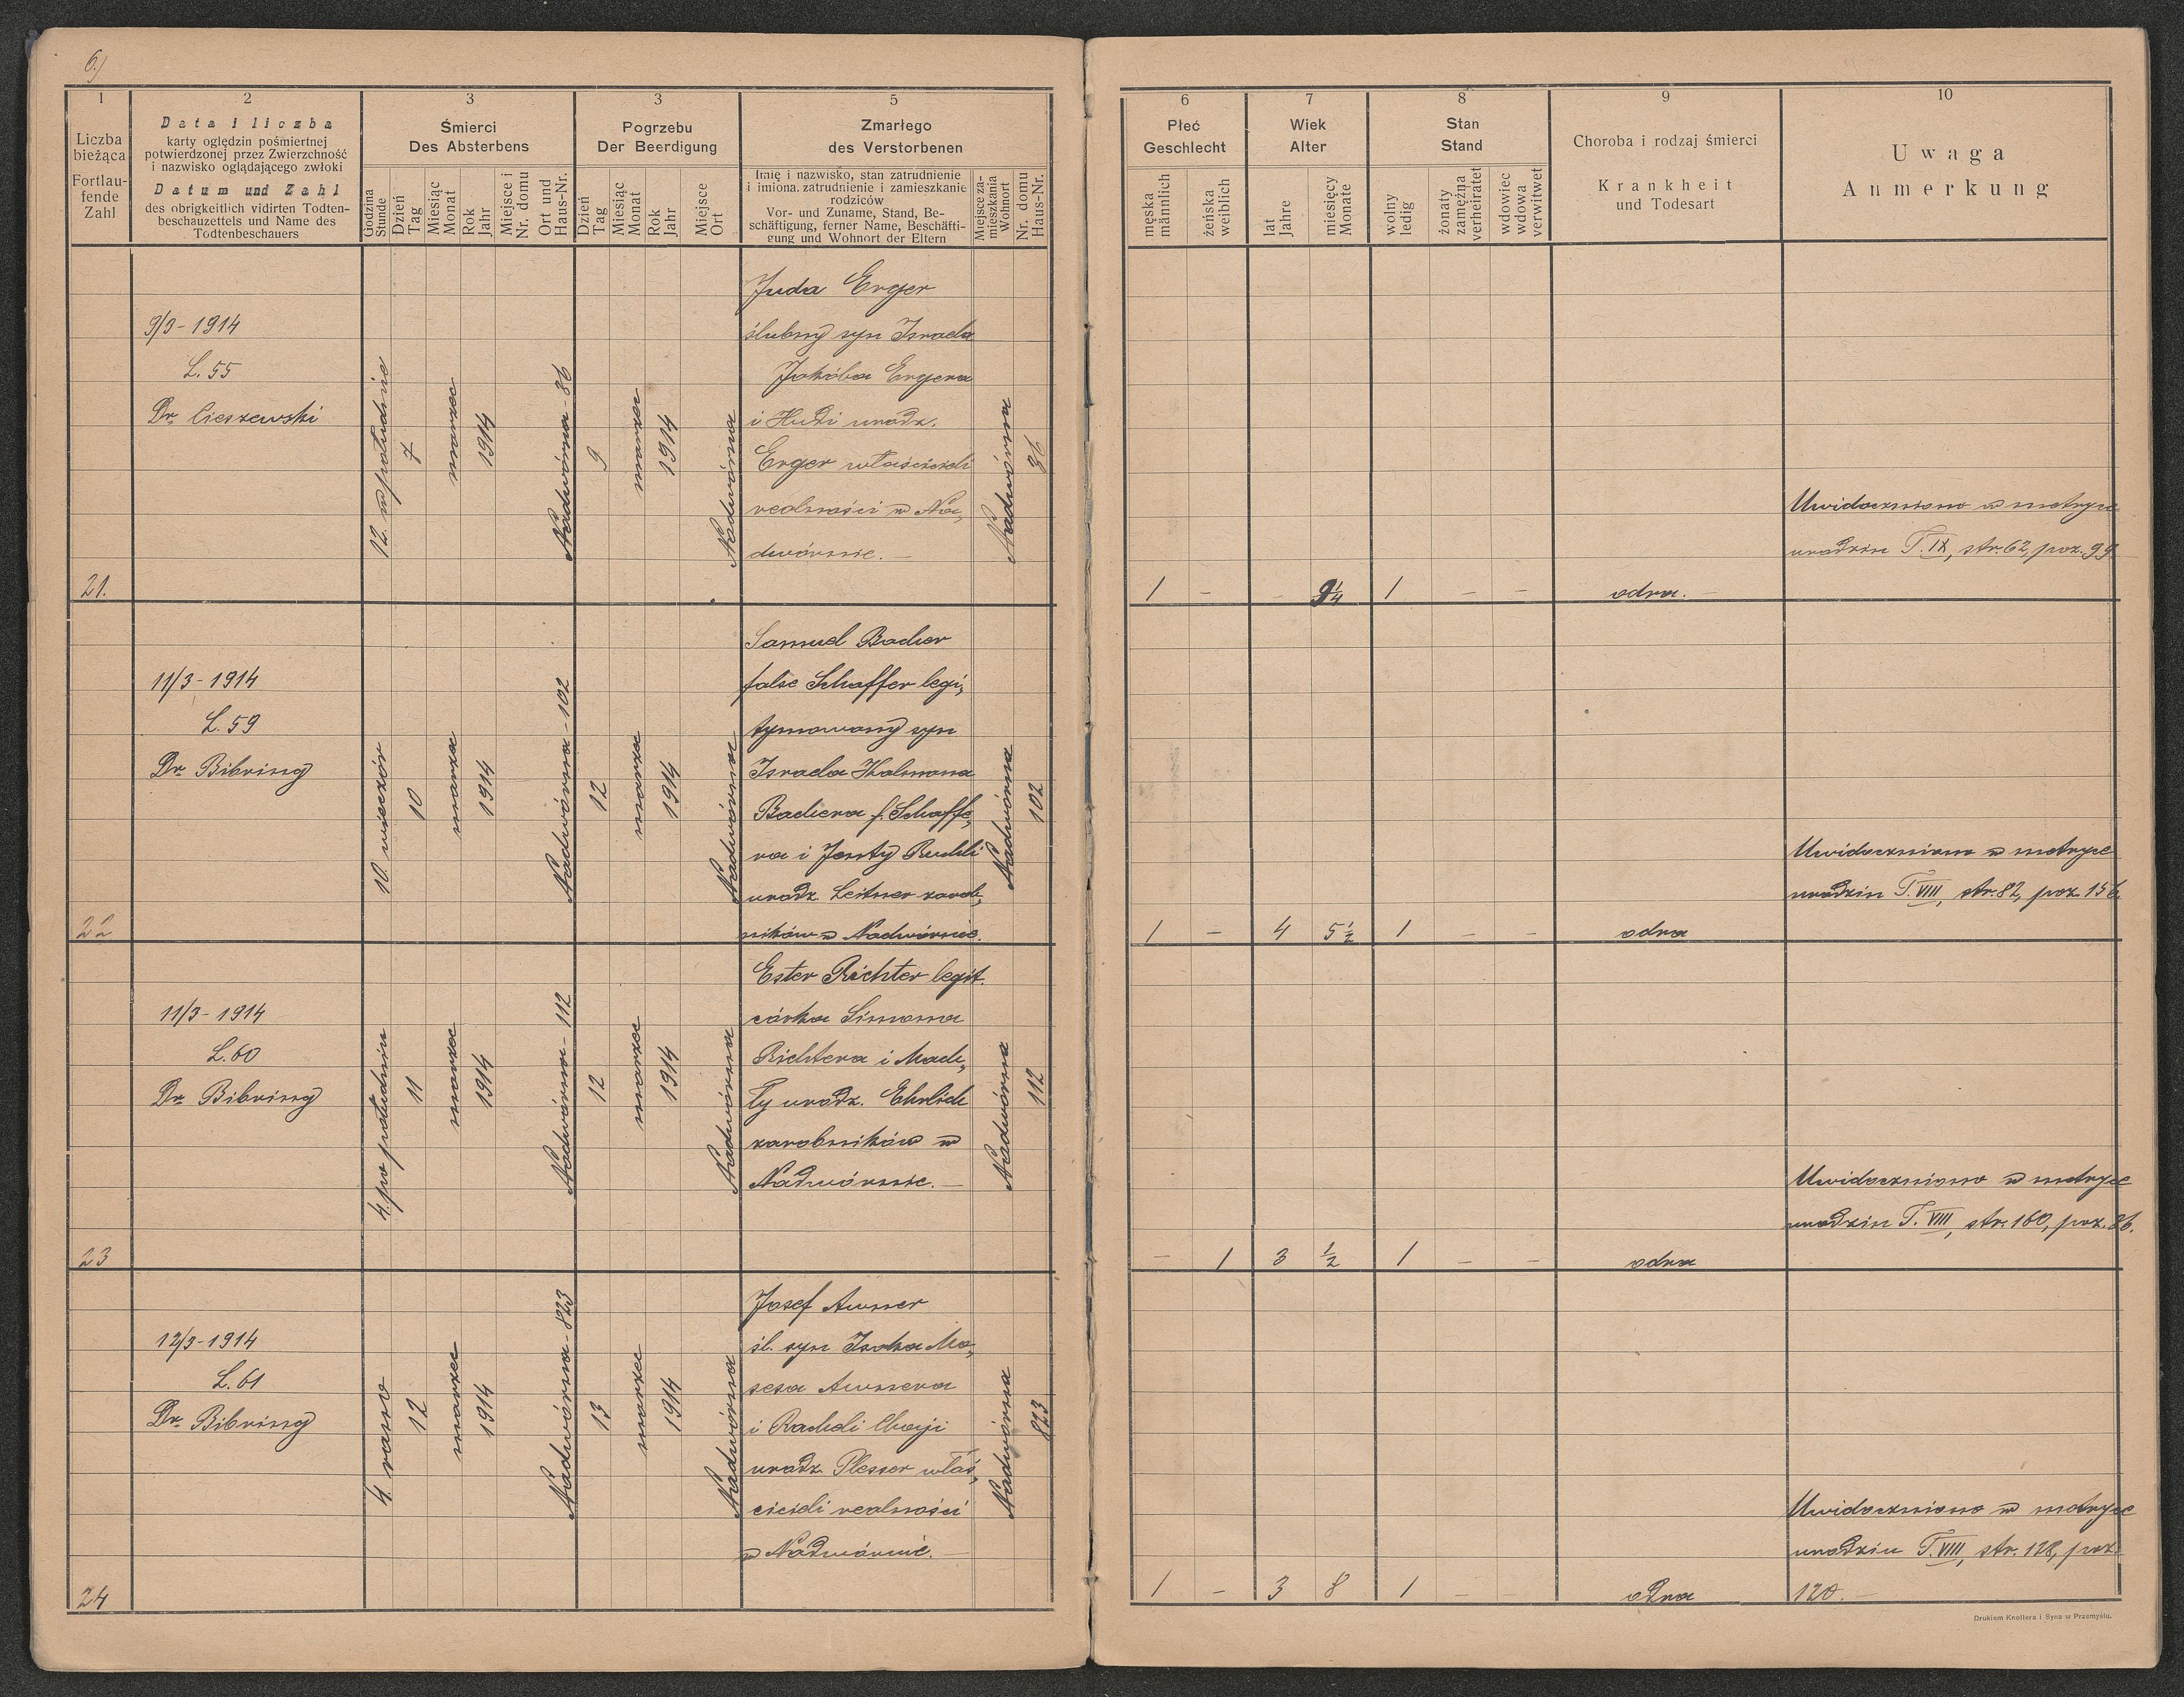 6.)
1
2
3
3
5
6
7
8
9
10
Liczba
bieżąca
Fortlau-
fende
Zahl
Data i liczba
karty oględzin pośmiertnej
potwierdzonej przez Zwierzchność
i nazwisko oglądającego zwłoki
Datum und Zahl
des obrigkeitlich vidirten Todten-
beschauzettels und Name des
Todtenbeschauers
Śmierci
Des Absterbens
Godzina
Stunde
Dzień
Tag
Miesiąc
Monat
Rok
Jahr
Miejsce i
Nr. domu
Ort und
Haus-Nr.
Pogrzebu
Der Beerdigung
Dzień
Tag
Miesiąc
Monat
Rok
Jahr
Miejsce
Ort
Zmarłego
des Verstorbenen
Imię i nazwisko, stan zatrudnienie
i imiona, zatrudnienie i zamieszkanie
rodziców
Vor- und Zuname, Stand, Be-
schäftigung, ferner Name, Beschäfti-
gung und Wohnort der Eltern
Miejsce za-
mieszkania
Wohnort
Nr. domu
Haus-Nr.
Płeć
Geschlecht
męska
männlich
żeńska
weiblich
Wiek
Alter
lat
Jahre
miesięcy
Monate
Stan
Stand
wolny
ledig
żonaty
zamężna
verheiratet
wdowiec
wdowa
verwitwet
Choroba i rodzaj śmierci
Krankheit
und Todesart
Uwaga
Anmerkung
21.
9/3 - 1914
L. 55
Dr. Cieszewski
12. w południe
7
marzec
1914
Nadwórna - 36
9
marzec
1914
Nadwórna
Juda Erger
ślubny syn Israela
Jakóba Ergera
i Hudi urodz.
Erger właścicieli
realności w Na„
dwórnie. —
Nadwórna
36
1 - - 9¼ 1 - -
odra. —
Uwidoczniono w metryce
urodzin T. IX, str. 62, poz. 99
22
11/3 - 1914
L. 59
Dr. Bibring
10 wieczór
10
marzec
1914
Nadwórna - 102
12
marzec
1914
Nadwórna
Samuel Badier
false Schaffer legi„
tymowany syn
Israela Kalmana
Badiera f. Schaffe„
ra i Jenty Ruchli
urodz. Leitner zarob„
ników w Nadwórnie.
Nadwórna
102
1 - 4 5½ 1 - -
odra
Uwidoczniono w metryce
urodzin T. VIII, str. 82, poz. 156
23
11/3 - 1914
L. 60
Dr. Bibring
4. po południu
11
marzec
1914
Nadwórna - 112
12
marzec
1914
Nadwórna
Ester Richter legit.
córka Simona
Richtera i Mach„
ły urodz. Ehrlich
zarobników w
Nadwórnie. —
Nadwórna
112
- 1 3 ½ 1 - -
odra
Uwidoczniono w metryce
urodzin T. VIII, str. 160, poz. 36.
24
12/3 - 1914
L. 61
Dr. Bibring
4. rano
12
marzec
1914
Nadwórna - 823
13
marzec
1914
Nadwórna
Josef Awner
śl. syn Izaka Mo„
sesa Awnera
i Racheli Chaji
urodz. Plesser właś„
cicieli realności
w Nadwórnie. —
Nadwórna
823
1 - 3 8 1 - -
odra
Uwidoczniono w metryce
urodzin T. VIII, str. 128, poz.
120. —
Drukiem Knollera i Syna w Przemyślu.